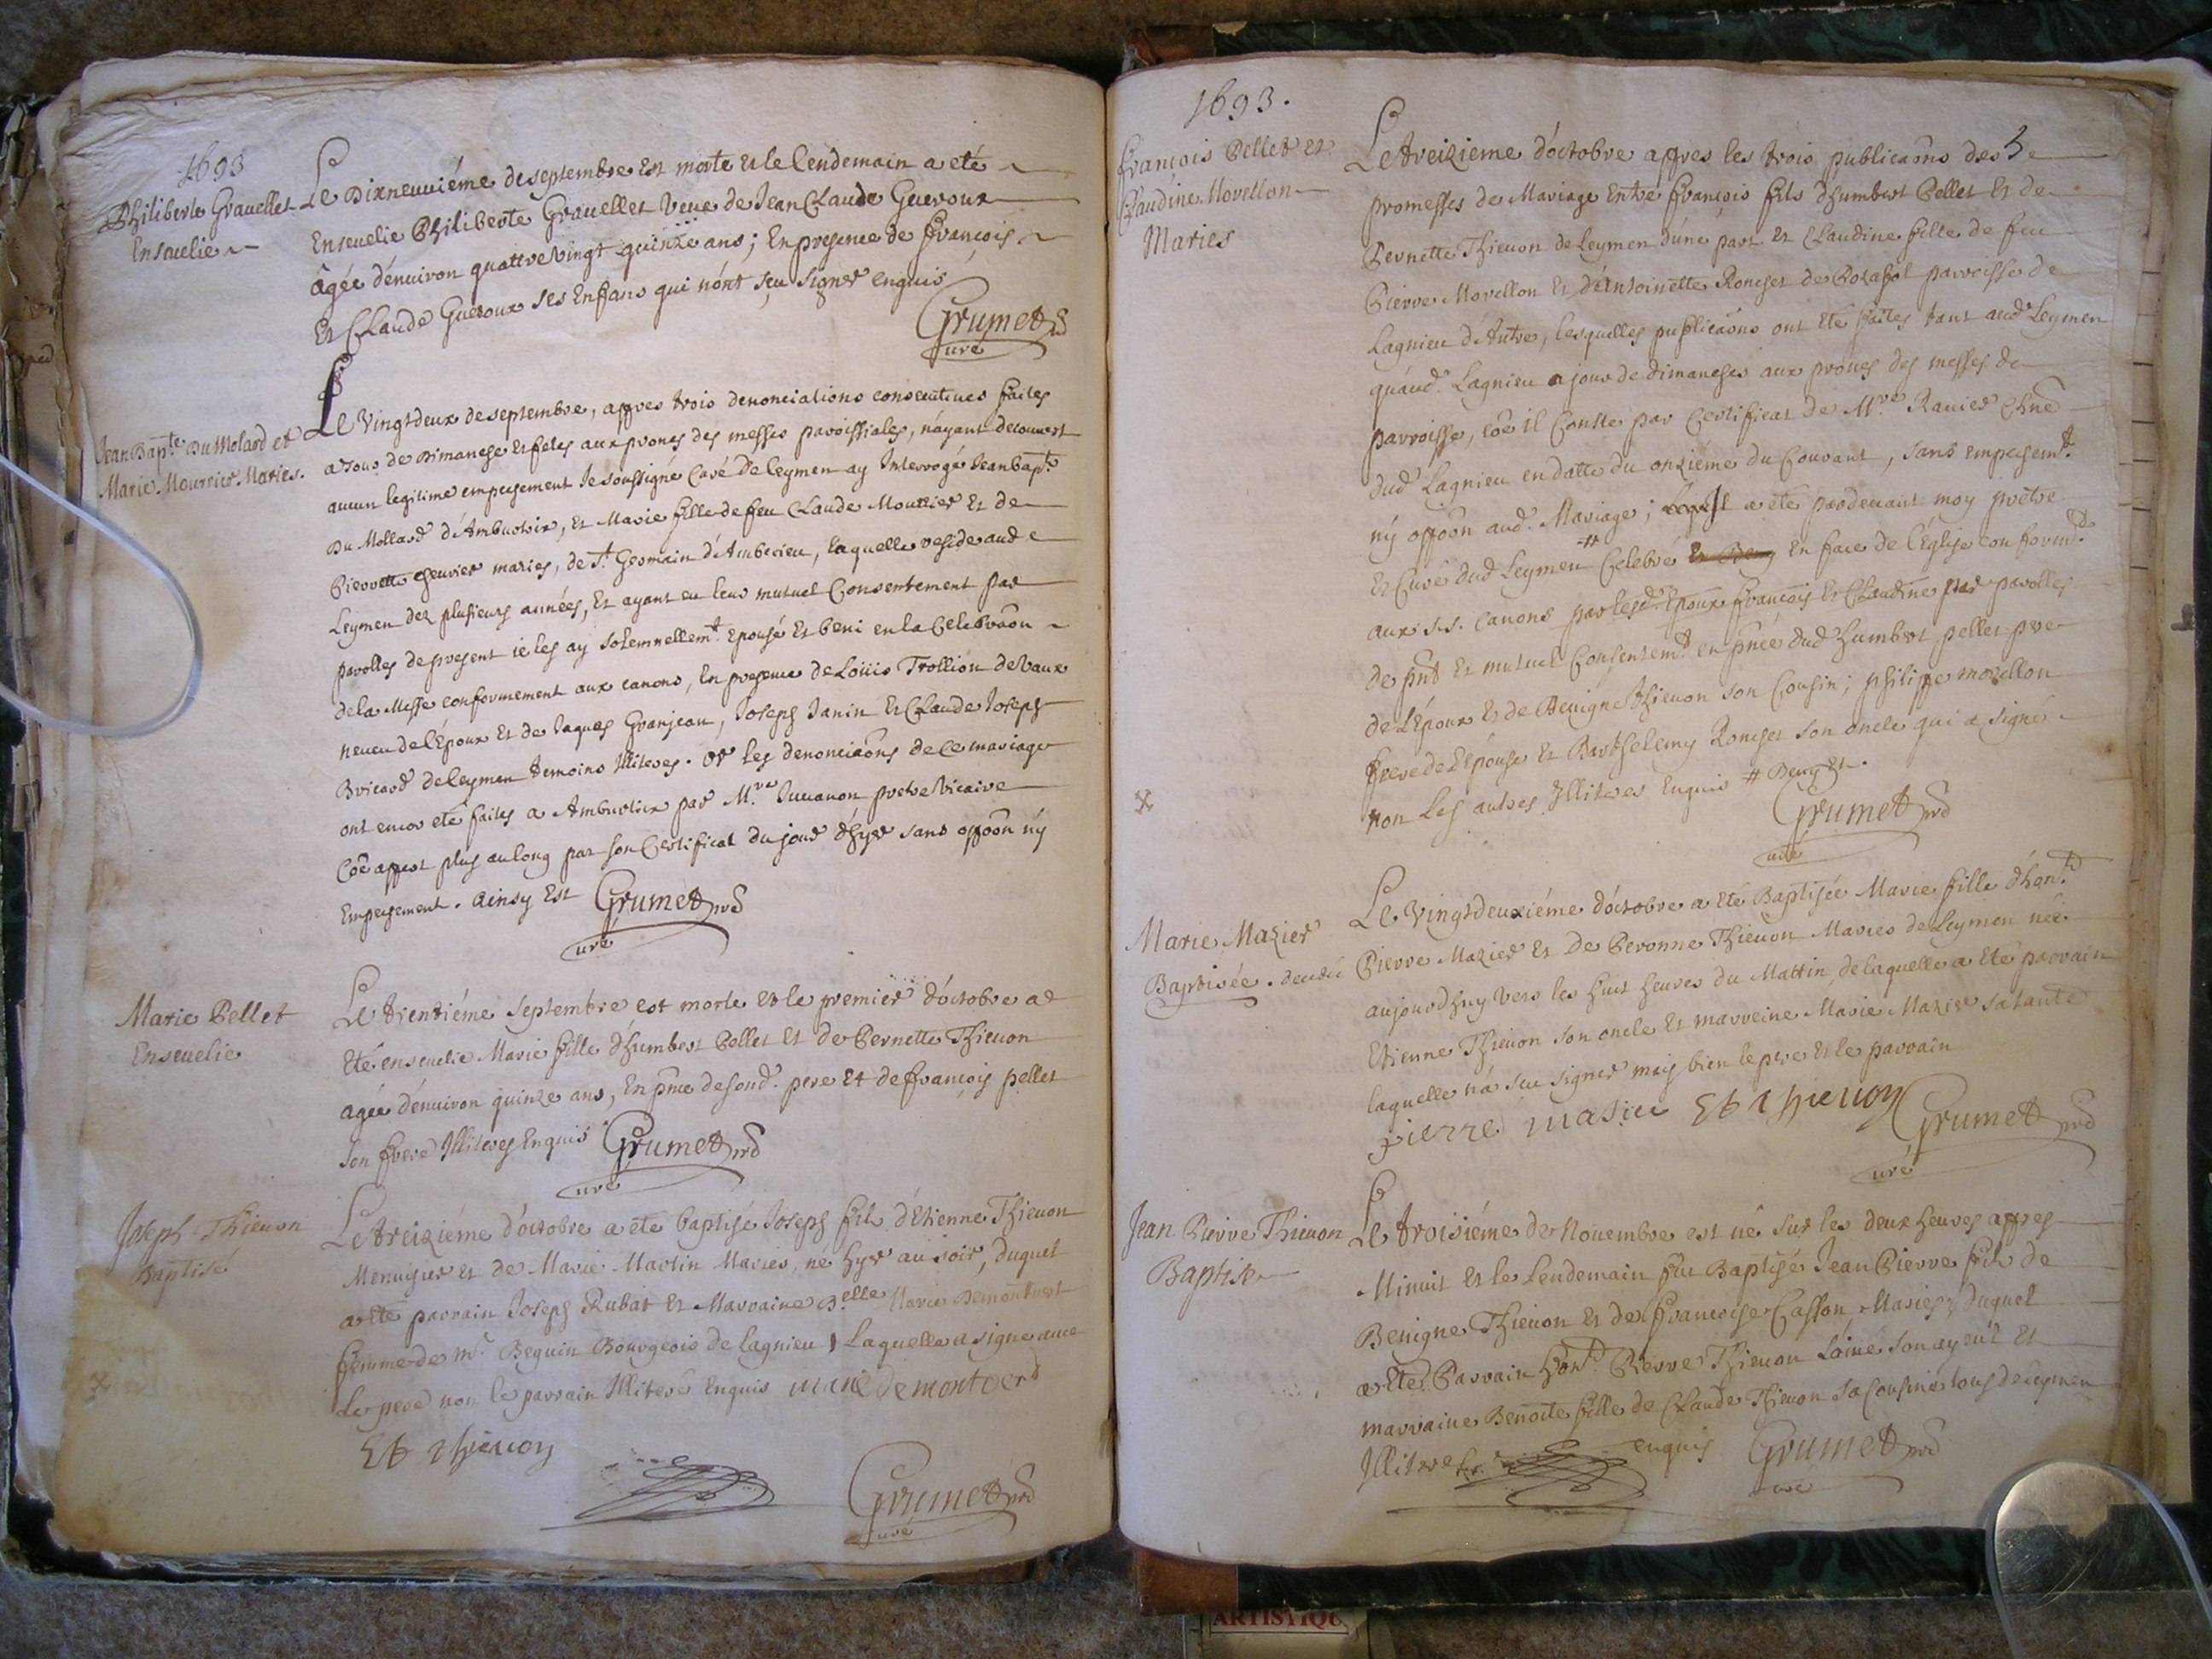 1693
Philiberte Grauellet
Enseuelie
Le Dixneuuiéme de septembre Est morte et le lendemain a eté
Enseuelie Philiberte Grauellet Veue de Jean Claude Gueroux
âgée d'enuiron quattre vingt quinze ans; En presence de François
Et Claude Gueroux ses Enfans qui n'ont sçu signer enquis
Grumet
curé
Jean Bap.te Du Molard et
Marie Mourrier Maries.
Le Vingtdeux de septembre, appres trois denonciations consecutiues faites
a jour de Dimanche et fetes aux prones des messes paroissiales, n'ayant decouuert
aucun legitime empechement Je soussigné Curé de Leymen ay Interrogé Jean bap.te
Du Mollard d'Ambutrix, et Marie fille de feu Claude Mourrier Et de
Pierrette cheurier maries, de S.t Germain d'Amberieu, laquelle reside aud
Leymen dez plusieurs années, Et ayant eu leur mutuel Consentement par
parolles de present ie les ay solemnellem.t Epousé Et beni en la Celebraôn
de la Messe conformement aux canons, En presence de Loüis Trollion de Vaux
neueu de l'Epoux Et de Jaques Granjean, Joseph Janin Et Claude Joseph
Bricard de Leymen temoins Illiteres. Et les denonciaôns de ce mariage
ont encor eté faites a Ambutrix par M.re Juuanon pretre Vicaire
Côe appert plus au long par son Certificat du jour d'hyer sans oppoôn ny
Empechement. Ainsy Est Grumet
curé
Marie Pellet
Enseuelie
Le trentiéme septembre est morte et le premier d'octobre a
Eté enseuelie Marie fille d'humbert Pellet Et de Pernette Thieuon
agée d'enuiron quinze ans, En pnce de sond. pere Et de François pellet
son frere Illiteres Enquis Grumet
curé
Joseph Thieuon
Baptisé
Le treiziéme d'octobre a eté baptisé Joseph fils d'Etienne Thieuon
Menuisier et de Marie Martin Maries, né hyer au soir, duquel
a eté parrain Joseph Rubat Et Marraine D.elle Marie Demontuert
femme de m.r Beguin Bourgeois de Lagnieu, Laquelle a signe auec
Le pere non le parrain Illiteré Enquis marie demontverd
Et thieuon
Grumet
curé
1693.
François Pellet et
Claudine Morellon
Maries
Le treizieme d'octobre appres les trois publicaôns des
promesses de Mariage Entre François fils d'humbert Pellet Et de
Pernette Thieuon de Leymen d'une part Et Claudine fille de feu
Pierre Morellon Et d'Antoinette Roncet de parroisse de
Lagnieu d'Autre, lesquelles publicaôns ont Eté faites tant aud Leymen
qu'aud. Lagnieu a jour de dimanches aux prones des messes de
parroisse, côe il Conste par Certificat de M.re Rauier
dud Lagnieu en datte du onzieme du Courant, sans empechem.t
ny oppoôn aud. Mariage; a eté pardeuant moy pretre
Et Curé dud Leymen # Celebré En face de l'Eglise conformem.t
aux s.s. canons par lesd. Epoux François Et Claudine par parolles
de pnt Et mutuel Consentem.t en pnce dud humbert pellet pere
de l'Epoux Et de Benigne Thieuon son Cousin; philippe morellon
frere de l'Epouse Et Barthelemy Roncet son oncle qui a signé
non Les autres Illiteres Enquis # Beny Et.
Grumet
curé
Marie Mazier
Baptisée.
Le Vingtdeuxiéme d'octobre a eté Baptisée Marie fille d'hon.te
Pierre Mazier Et De Peronne Thieuon Maries de Leymen née
aujourd'huy vers les huit heures du Mattin, de laquelle a Eté parrain
Etienne Thieuon son oncle Et marreine Marie Mazier sa tante
laquelle n'a sceu signer mais bien le pere Et le parrain
pierre masier Et thieuon Grumet
curé
Jean Pierre Thieuon
Baptisé
Le troisiéme de Nouembre est né sur les deux heures appres
Minuit Et le Lendemain fut Baptisé Jean Pierre fils de
Benigne Thieuon Et de Françoise Casson Maries, duquel
a eté Parrain hon.te Pierre Thieuon L'ainé son ayeul Et
marraine Benoite fille de Claude Thieuon sa Cousine tous de Leymen
Illiteres enquis Grumet
curé
ARTISTIQU